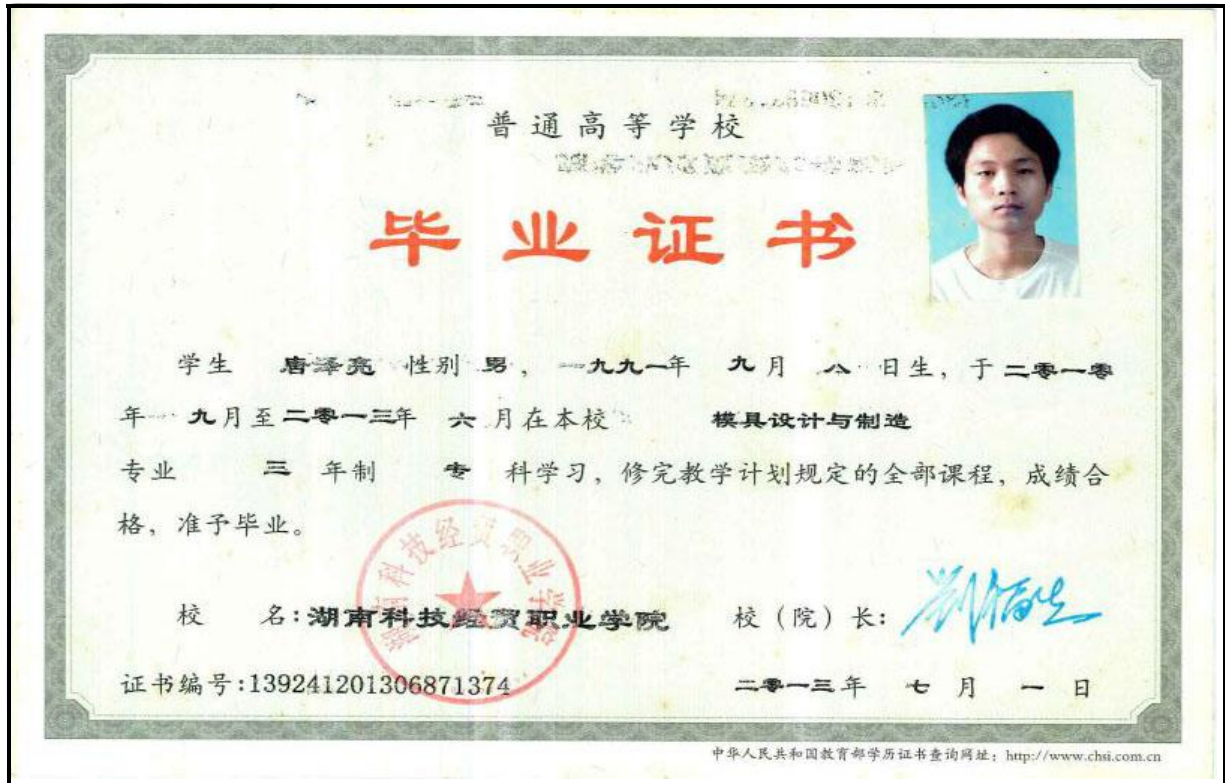 普通高等学校
毕业证书
学生 唐泽亮 性别 男, 一九九一年 九月 八 日生, 于二零一零
年 九月至二零一三年 六 月在本校 模具设计与制造
专业 三 年制 专 科学习, 修完教学计划规定的全部课程, 成绩合
格, 准予毕业。
湖南科技经贸职业学院
校 名:湖南科技经贸职业学院 校（院）长:
证书编号:139241201306871374 二零一三年 七 月 一 日
中华人民共和国教育部学历证书查询网址: http://www.chsi.com.cn